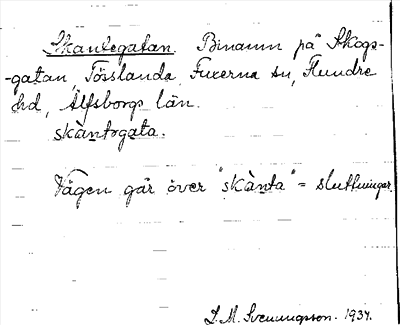 Skantegatan. Binamn på Skogs-
-gatan Tösslanda Fuxerna sn, Flundre
hd, Älfsborgs län.
skàntəgata.
Vägen går över "skànta" = sluttningar.
L. M. Svenungsson. 1934.